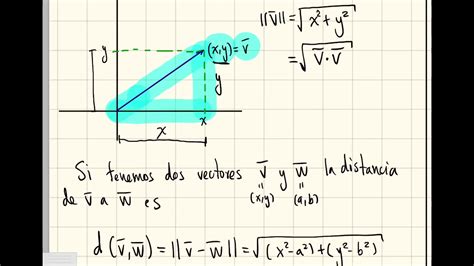 ||v̅|| = √(x² + y²)
= √(v̅ · v̅)
y
(x,y) = v̅
y
x
x
Si tenemos dos vectores v̅ y w̅ la distancia
(x,y) (a,b)
de v̅ a w̅ es
d(v̅,w̅) = ||v̅ - w̅|| = √((x²-a²)+(y²-b²))